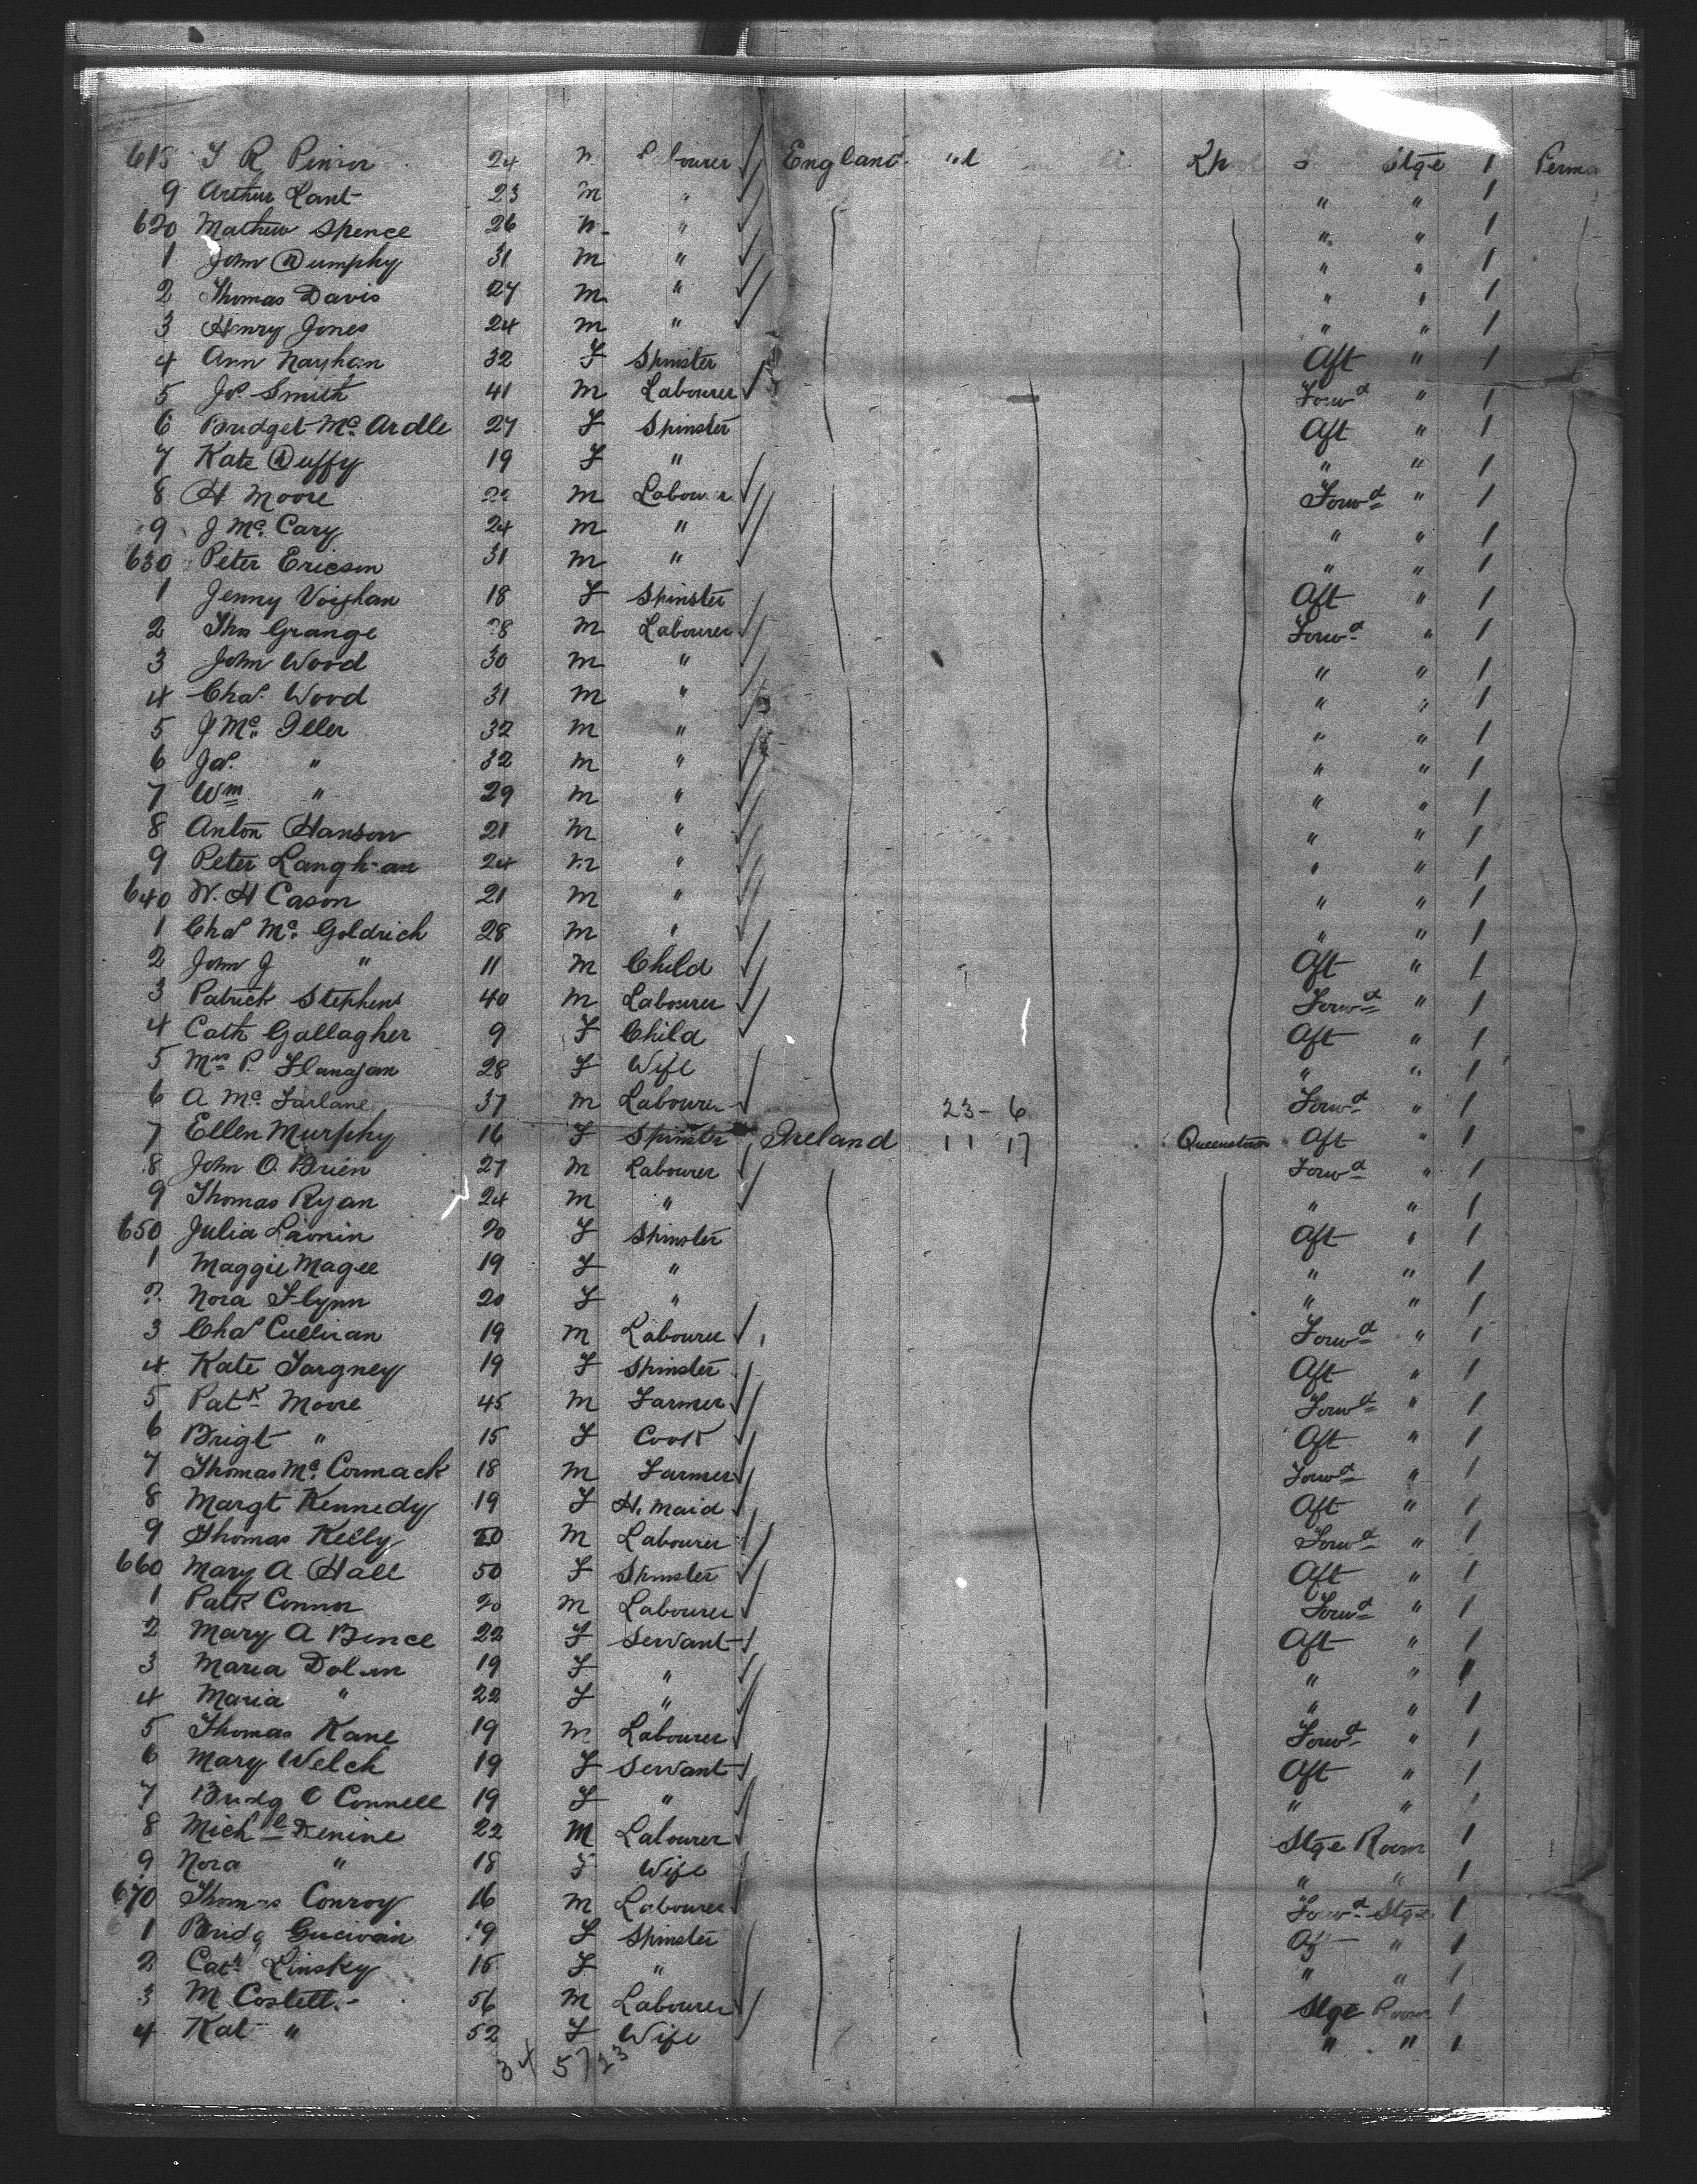 618 J R Pinior 24 m Labourer England Stge 1 Perma
9 Arthur Lant 23 m " " " 1
620 Mathew Spence 26 m " " " 1
1 John Dumphy 31 m " " " 1
2 Thomas Davis 27 m " " " 1
3 Henry Jones 24 m " " " 1
4 Ann Nayhan 32 F Spinster Aft " 1
5 Jas Smith 41 m Labourer Forwd " 1
6 Bridget Mc Ardle 27 F Spinster Aft " 1
7 Kate Duffy 19 F " " " 1
8 H Moore 22 m Labourer Forwd " 1
9 J Mc Cary 24 m " " " 1
630 Peter Ericson 31 m " " " 1
1 Jenny Voighan 18 F Spinster Aft " 1
2 Thos Grange 8 m Labourer Forwd " 1
3 John Wood 30 m " " " 1
4 Chas Wood 31 m " " " 1
5 J Mc Iller 32 m " " " 1
6 Jas " 32 m " " " 1
7 Wm " 29 m " " " 1
8 Anton Hanson 21 m " " " 1
9 Peter Langhan 24 m " " " 1
640 W. H Cason 21 m " " " 1
1 Chas Mc Goldrich 28 m " " " 1
2 John J " 11 m Child Aft " 1
3 Patrick Stephens 40 m Labourer Forwd " 1
4 Cath Gallagher 9 F Child Aft " 1
5 Mrs P. Flanagan 28 F Wife " " 1
6 A Mc Farlane 37 m Labourer 23 - 6 Forwd " 1
7 Ellen Murphy 16 F Spinster Ireland 11 17 Queenstown Aft " 1
8 John O Brien 27 m Labourer Forwd " 1
9 Thomas Ryan 24 m " " " 1
650 Julia Lionin 20 F Spinster Aft " 1
1 Maggie Magee 19 F " " " 1
2 Nora Flynn 20 F " " " 1
3 Chas Cullinan 19 m Labourer Forwd " 1
4 Kate Targney 19 F Spinster Aft " 1
5 Patk Moore 45 m Farmer Forwd " 1
6 Brigt " 15 F Cook Aft " 1
7 Thomas Mc Cormack 18 m Farmer Forwd " 1
8 Margt Kennedy 19 F H. Maid Aft " 1
9 Thomas Kelly 20 m Labourer Forwd " 1
660 Mary A Hall 50 F Spinster Aft " 1
1 Patk Connor 20 m Labourer Forwd " 1
2 Mary A Bence 22 F Servant Aft " 1
3 Maria Dolan 19 F " " " 1
4 Maria " 22 F " " " 1
5 Thomas Kane 19 m Labourer Forwd " 1
6 Mary Welch 19 F Servant Aft " 1
7 Bridg O Connell 19 F " " " 1
8 Michl Denine 22 M Labourer Stge Room 1
9 Nora " 18 F Wife " " 1
670 Thomas Conroy 16 m Labourer Forwd Stge 1
1 Bridg 19 F Spinster Aft " 1
2 Cath Linsky 15 F " " " 1
3 M Costell 56 m Labourer Stge Room 1
4 Kat " 52 F Wife " " 1
34 57 23